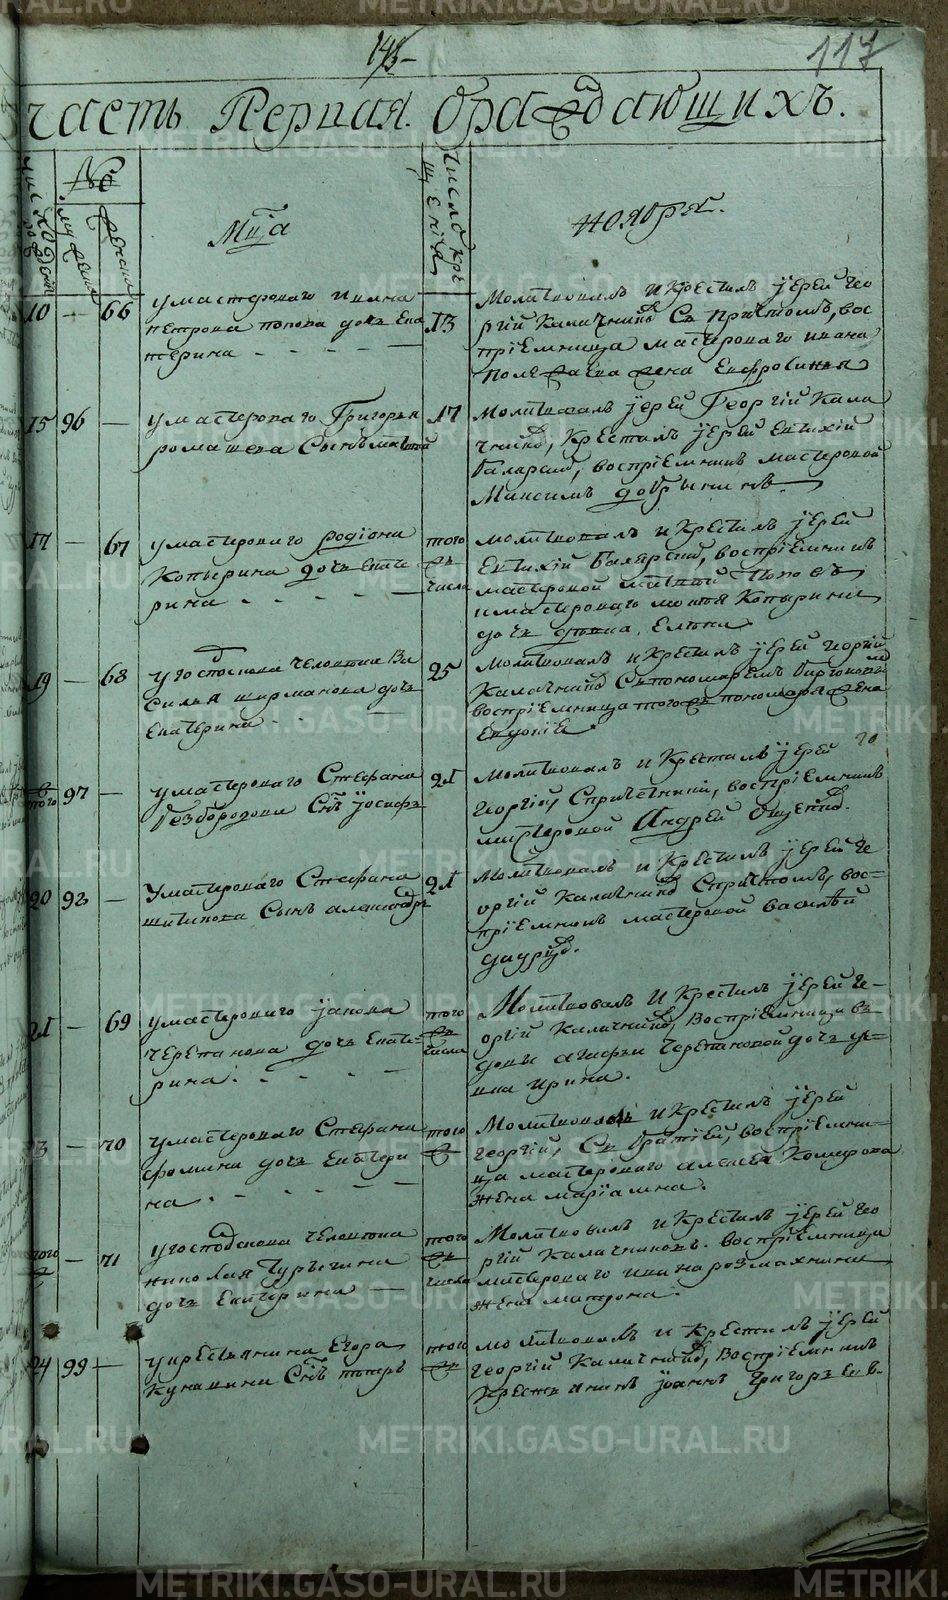 143
117
часть Первая. О раждающихъ.
число рожд
№
му жеска
женска
Мц͠а
число кре щенїя
ноября.
10 — 66
у мастероваго ивана
петрова попова дочь Ека
терина
13
Молитвовалъ и крестилъ їерей гео
ргїй Калачниковъ съ причтомъ, вос
прїемница мастероваго ивана
жена Евфросинья
15 96 —
у мастероваго Григорья
ромашева Сынъ матвей
17
Молитвовалъ їерей Георгїй Кала
чниковъ, Крестилъ їерей Евтихїй
восприемникъ мастеровой
Максимъ добрынинъ.
17 — 67
у мастероваго родїона
Копырина дочь екате
рина
того жъ числа
молитвовалъ и крестилъ їерей
Евтихїй воспрїемникъ
мастеровой матвей Поповъ
и мастероваго Копырина
дочь девка Елена
19 — 68
у господскаго человека Ва
силья ширманова дочь
екатерина
25
Молитвовалъ и крестилъ їерей георгїй
Калачниковъ съ пономаремъ
воспрїемница того жъ пономаря жена
Евдокїя
того 97 —
у мастероваго Стефана
безбородова Сынъ Їосифъ
21
Молитвовалъ и крестилъ їерей
Георгїй, Спричетники, воспрїемникъ
мастеровой Андрей
20 98 —
У мастероваго Стефана
шитикова Сынъ александръ
21
Молитвовалъ и крестилъ їерей Ге
оргїй Калачниковъ Спричтомъ, вос
прїемникъ мастеровой василей
21 — 69
у мастероваго якова
черепанова дочь екате
рина.
того жъ числа
Молитвовалъ и крестилъ їерей Ге
оргїй Калачниковъ, воспрїемница в
довы агафьи Черепановой дочь де
вка ирина.
23 — 70
у мастероваго Стефана
фомина дочь екатери
на.
того жъ
Молитвовалъ и крестилъ їерей
георгїй, съ братїею, воспрїемни
ца мастероваго алексея Комарова
жена марїамна.
того ж — 71
у господскаго человека
николая Турыгина
дочь екатерина
того жъ числа
Молитвовалъ и крестилъ їерей гео
ргїй Калачниковъ. воспрїемница
мастероваго ивана розмахнина
жена матрона.
24 99 —
у крестьянина Егора
Кукшина Сынъ петръ
того жъ
молитвовалъ и крестилъ їерей
георгїй Калачниковъ, воспрїемникъ
крестьянинъ їоаннъ Григорьевъ.
METRIKI.GASO-URAL.RU